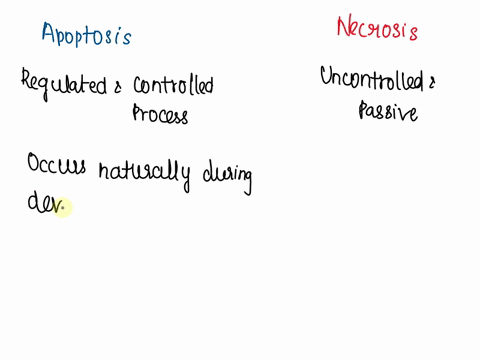 Apoptosis
Necrosis
Regulated & Controlled
Process
Uncontrolled &
Passive
Occurs naturally during
dev.